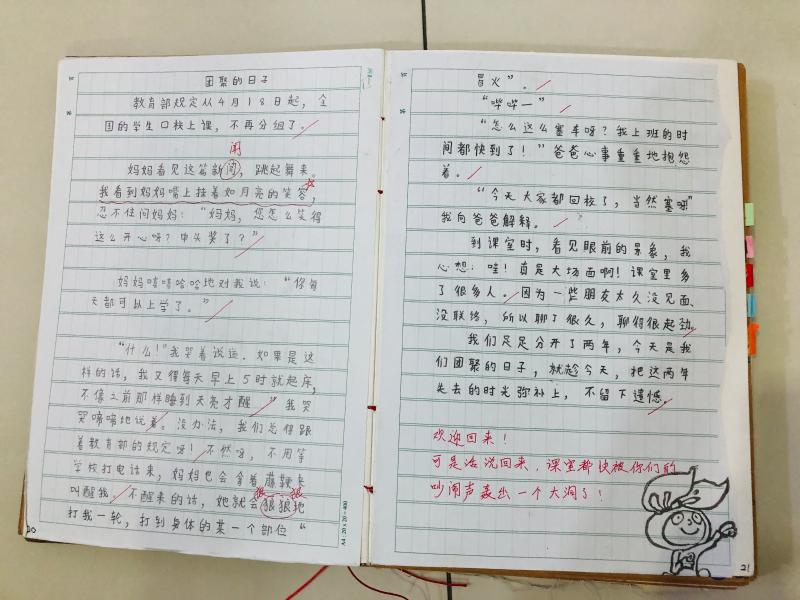 团聚的日子
教育部规定从4月18日起，全
国的学生口秩上课，不再分组了。
闻
妈妈看见这篇新闵，跳起舞来。
我看到妈妈嘴上挂着如月亮的笑容，
忍不住问妈妈：“妈妈，您怎么笑得
这么开心呀？中头奖了？”
妈妈嘻嘻哈哈地对我说：“你每
天都可以上学了。”
“什么！”我哭着说道．如果是这
样的话，我又得每天早上5时就起床，
不像之前那样睡到天亮才醒”我哭
哭啼啼地说着。没办法，我们总得跟
着教育部的规定呀！不然呀，不用等
学校打电话来，妈妈也会拿着藤鞭来
叫醒我。不醒来的话，她就会狠狠地
狠 狠
打我一轮，打到身体的某一个部位“
20
A4：20×20=400
冒火”。
“哔哔—”
“怎么这么塞车呀？我上班的时
间都快到了！”爸爸心事重重地抱怨
着。
“今天大家都回校了，当然塞呀”
我向爸爸解释。
到课室时，看见眼前的景象，我
心想：哇！真是大场面啊！课室里多
了很多人。因为一些朋友太久没见面、
没联络，所以聊了很久，聊得很起劲。
我们足足分开了两年，今天是我
们团聚的日子，就趁今天，把这两年
失去的时光弥补上，不留下遗憾。
欢迎回来！
可是话说回来，课室都快被你们的
吵闹声轰出一个大洞了！
21